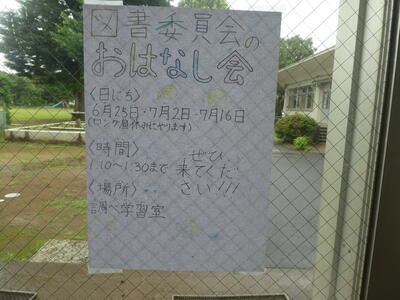 図書委員会の
おはなし会
〈日にち〉
6月25日・7月2日・7月16日
(ロング昼休みにやります)
〈時間〉
1:10〜1:30まで
〈場所〉
調べ学習室
ぜひ
来てくだ
さい!!!